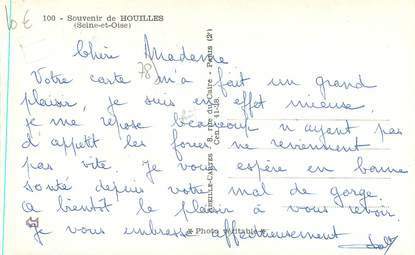 10 €
100 - Souvenir de HOUILLES
(Seine-et-Oise)
Chère Madame
Votre carte m'a fait un grand
plaisir, je suis en effet mieuse.
je me repose beaucoup n'ayant pas
d'appétit les forces ne reviennent
pas vite. Je vous espère en bonne
santé depuis votre mal de gorge.
A bientôt le plaisir à vous revoir.
Je vous embrasse affectueusement
78
ABEILLE-CARTES - 8, rue du Caire - Paris (2e)
Cen. 41-28
* Photo véritable *